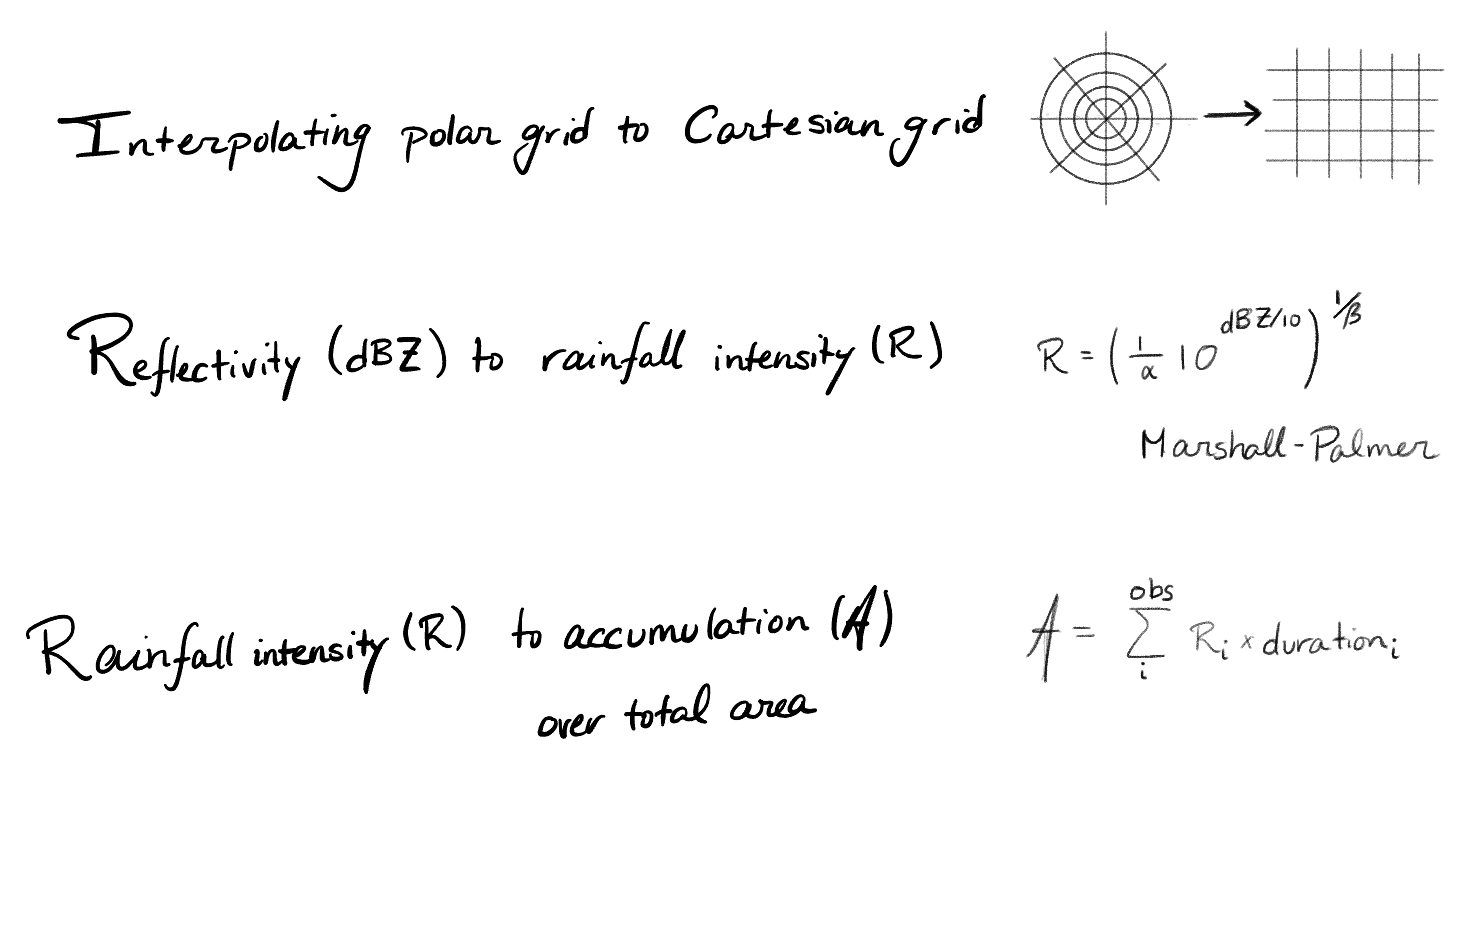 Interpolating polar grid to Cartesian grid
Reflectivity (dBZ) to rainfall intensity (R)
R = (1/α 10^dBZ/10)^1/β
Marshall-Palmer
Rainfall intensity (R) to accumulation (A)
over total area
A = obs∑i Ri × durationi